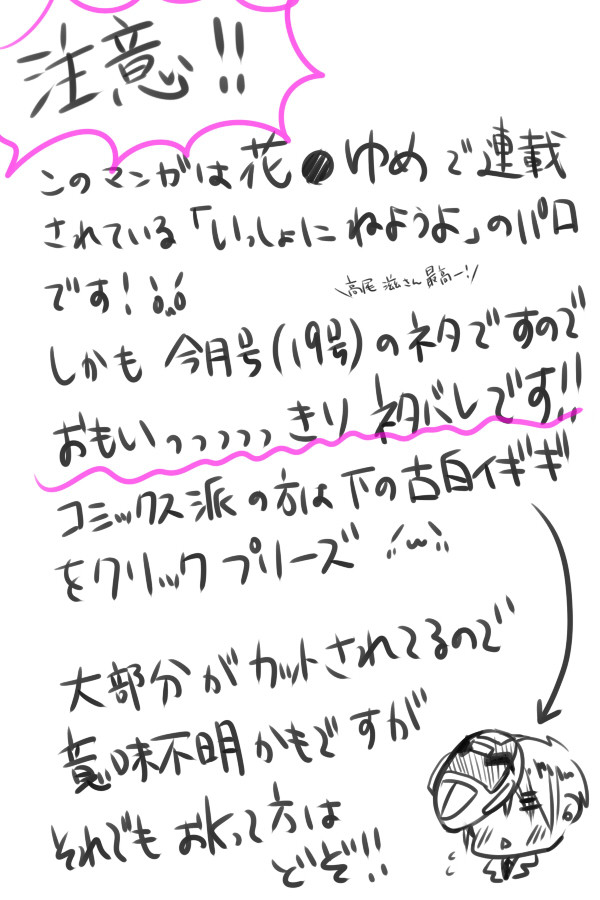 注意!!
このマンガは花●ゆめで連載
されている「いっしょにねようよ」のパロ
です!
\高尾滋さん最高ー!/
しかも 今月号(19号)のネタですので
おもいっっっっっきりネタバレです!!
コミックス派の方は下の古白イギギ
をクリックプリーズ ´ω`
大部分がカットされてるので
意味不明かもですが
それでもおkって方は
どぞ!!